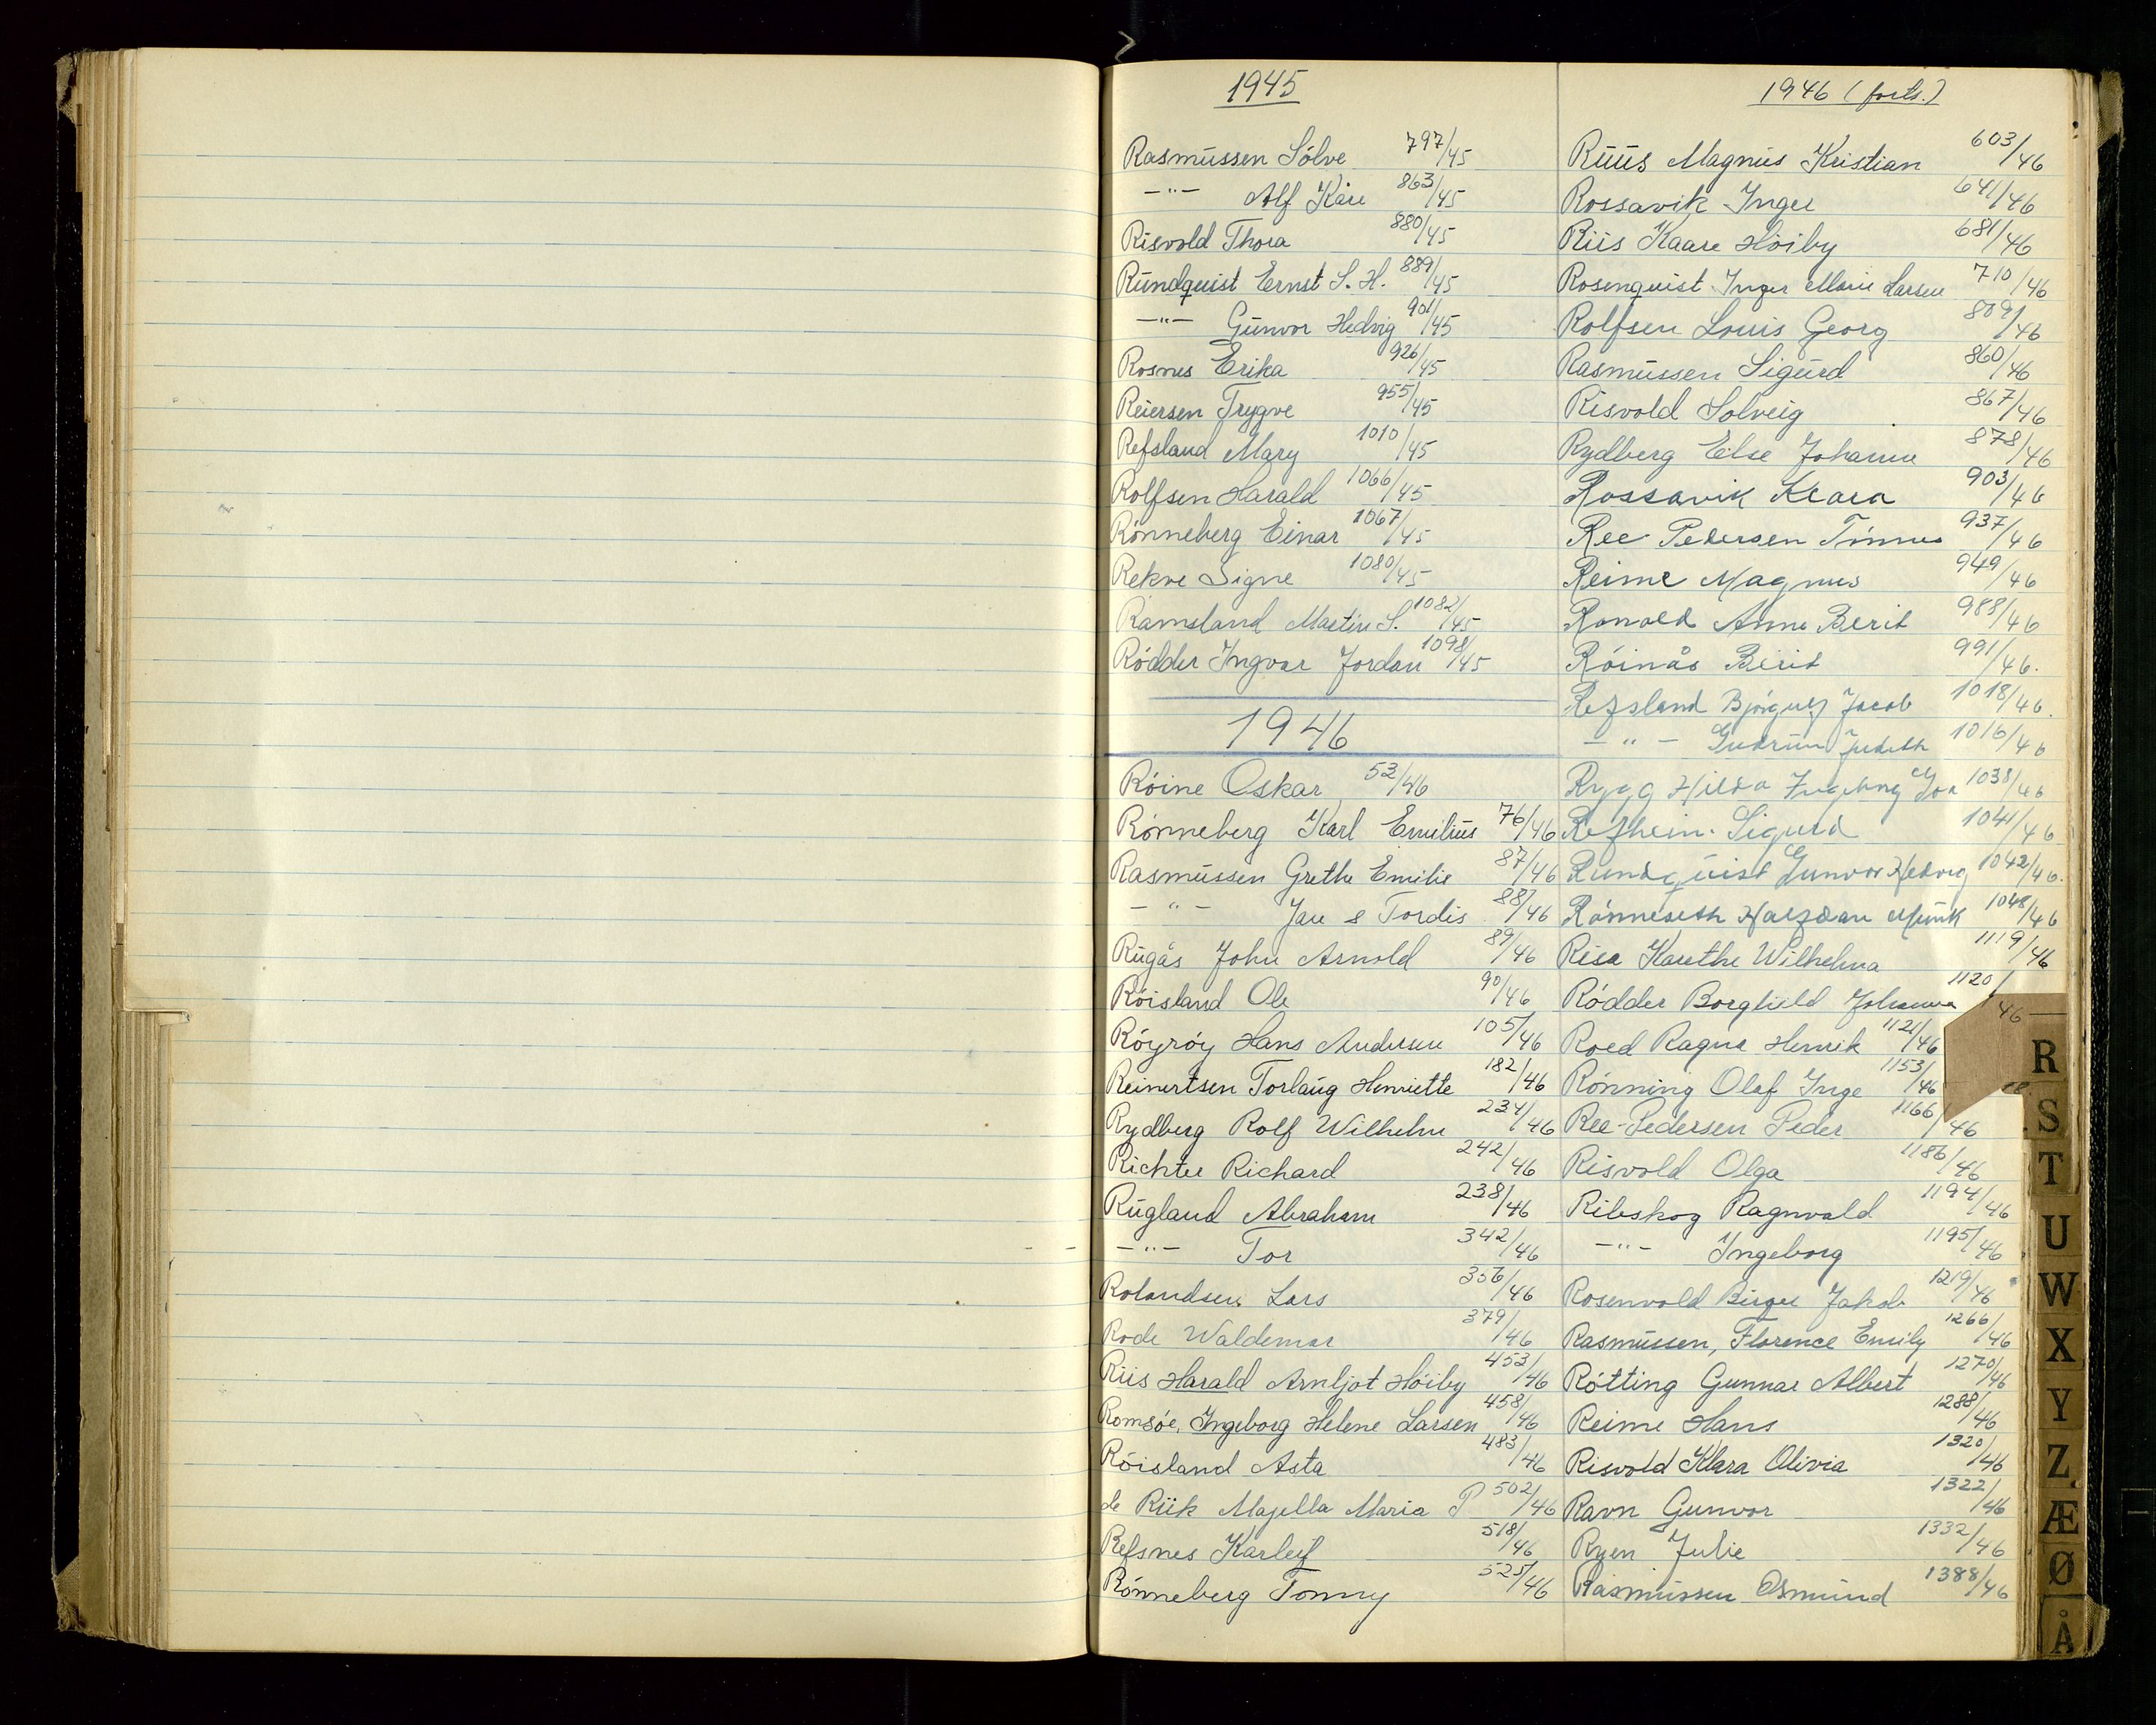 1945
Rasmussen Sölve 797/45
-"- Alf Kåre 863/45
Risvold Thora 880/45
Rundquist Ernst S. H. 889/45
-"- Gunvor Hedvig 901/45
Rosnes Erika 926/45
Reiersen Trygve 955/45
Refsland Mary 1010/45
Rolfsen Harald 1066/45
Rönneberg Einar 1067/45
Rekve Signe 1080/45
Ramsland Martin S. 1082/45
Rödder Ingvar Jordan 1098/45
1946
Röine Oskar 53/46
Rönneberg Karl Emilius 76/46
Rasmussen Grethe Emilie 87/46
-"- Jan & Tordis 88/46
Rugås John Arnold 89/46
Röisland Ole 90/46
Röyröy Hans Andersen 105/46
Reinertsen Torlaug Henriette 182/46
Rydberg Rolf Wilhelm 234/46
Richter Richard 242/46
Rugland Abraham 238/46
-"- Tor 342/46
Rolandsen Lars 356/46
Rode Waldemar 379/46
Riis Harald Arnljot Höiby 453/46
Romsöe, Ingeborg Helene Larsen 458/46
Röisland Asta 483/46
de Riik Majella Maria P 502/46
Refsnes Karleif 518/46
Rönneberg Tonny 525/46
1946 (forts.)
Ruus Magnus Kristian 603/46
Rossavik Inger 641/46
Riis Kaare Höiby 681/46
Rosenquist Inger Marie Larsen 710/46
Rolfsen Louis Georg 809/46
Rasmussen Sigurd 860/46
Risvold Solveig 867/46
Rydberg Else Johanne 878/46
Rossavik Klara 903/46
Ree Pedersen Tönnes 937/46
Reime Magnus 949/46
Ronald Anne Berit 988/46
Röinås Berit 991/46.
Refsland Björgulf Jacob 1018/46.
-"- Gudrun Judith 1016/46
Rygg Hilda Ingeborg 1038/46
Refheim Sigurd 1041/46
Rundquist Gunvor Hedvig 1042/46.
Rönneseth Halfdan Munk 1048/46
Risa Karethe Wilhelma 1119/46
Rödder Borghild Johanna 1120/46
Roed Ragna Henrik 1121/46
Rönning Olaf Inge 1153/46
Ree-Pedersen Peder 1166/46
Risvold Olga 1186/46
Ribeskog Ragnvald 1194/46
-"- Ingeborg 1195/46
Rosenvold Birger Jakob 1219/46
Rasmussen, Florence Emily 1266/46
Rötting Gunnar Albert 1270/46
Reime Hans 1288/46
Risvold Klara Olivia 1320/46
Ravn Gunvor 1322/46
Ryen Julie 1332/46
Rasmussen Osmund 1388/46
R
S
T
U
W
X
Y
Z
Æ
Ø
Å